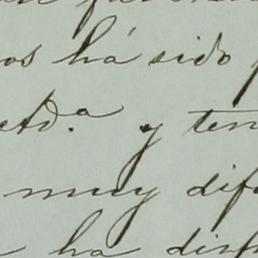 os há sido
etd.ª y ten
muy dif
ha disp